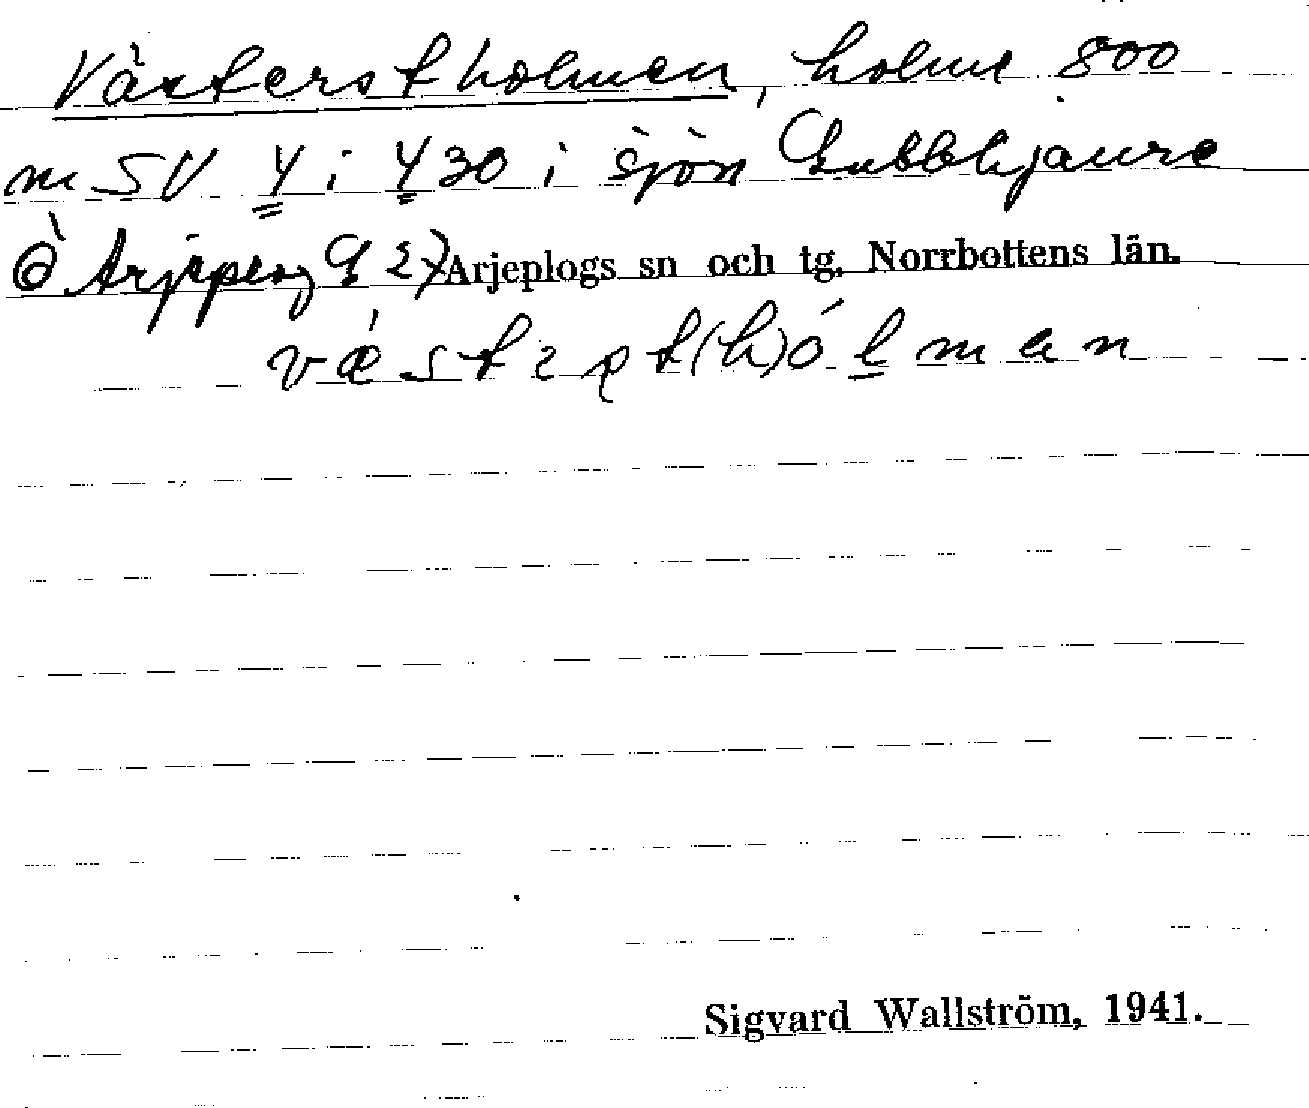 Västerstholmen, holme 800
m SV 4 i 430 i sjön Gubblijaure
Ö Arjeplog 27 Arjeplogs sn och tg. Norrbottens län.
væst
Sigvard Wallström, 1941.